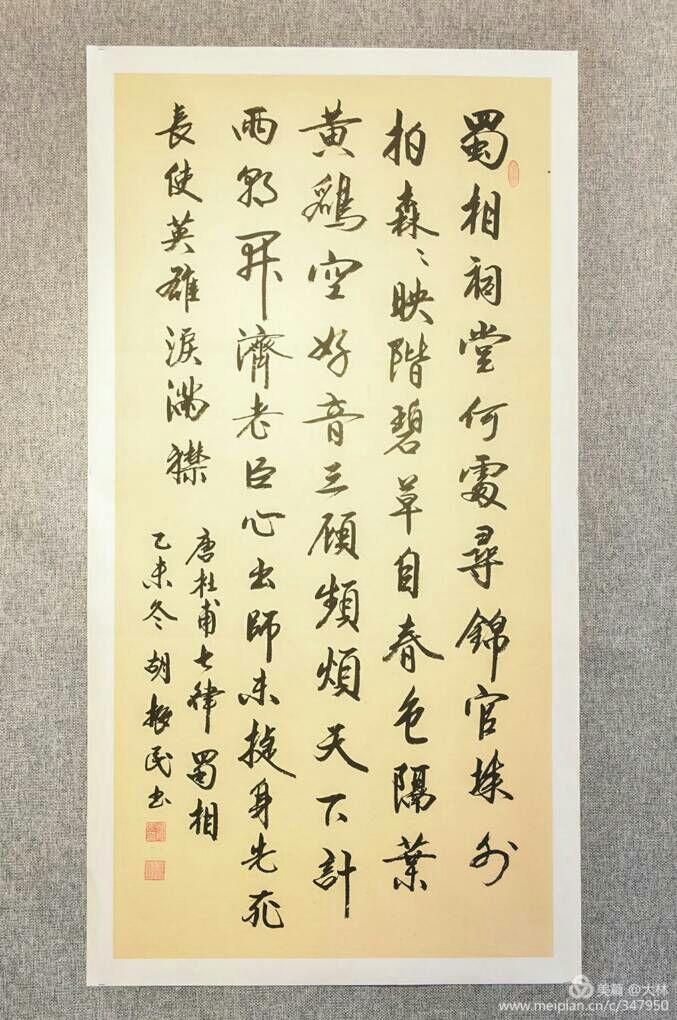 蜀相祠堂何處尋錦官城外
柏森〻映階碧草自春色隔葉
黃鸝空好音三顧頻煩天下計
兩朝開濟老臣心出師未捷身先死
長使英雄淚滿襟
唐杜甫七律蜀相
乙未冬胡振民書
美篇 @大林
www.meipian.cn/c/347950